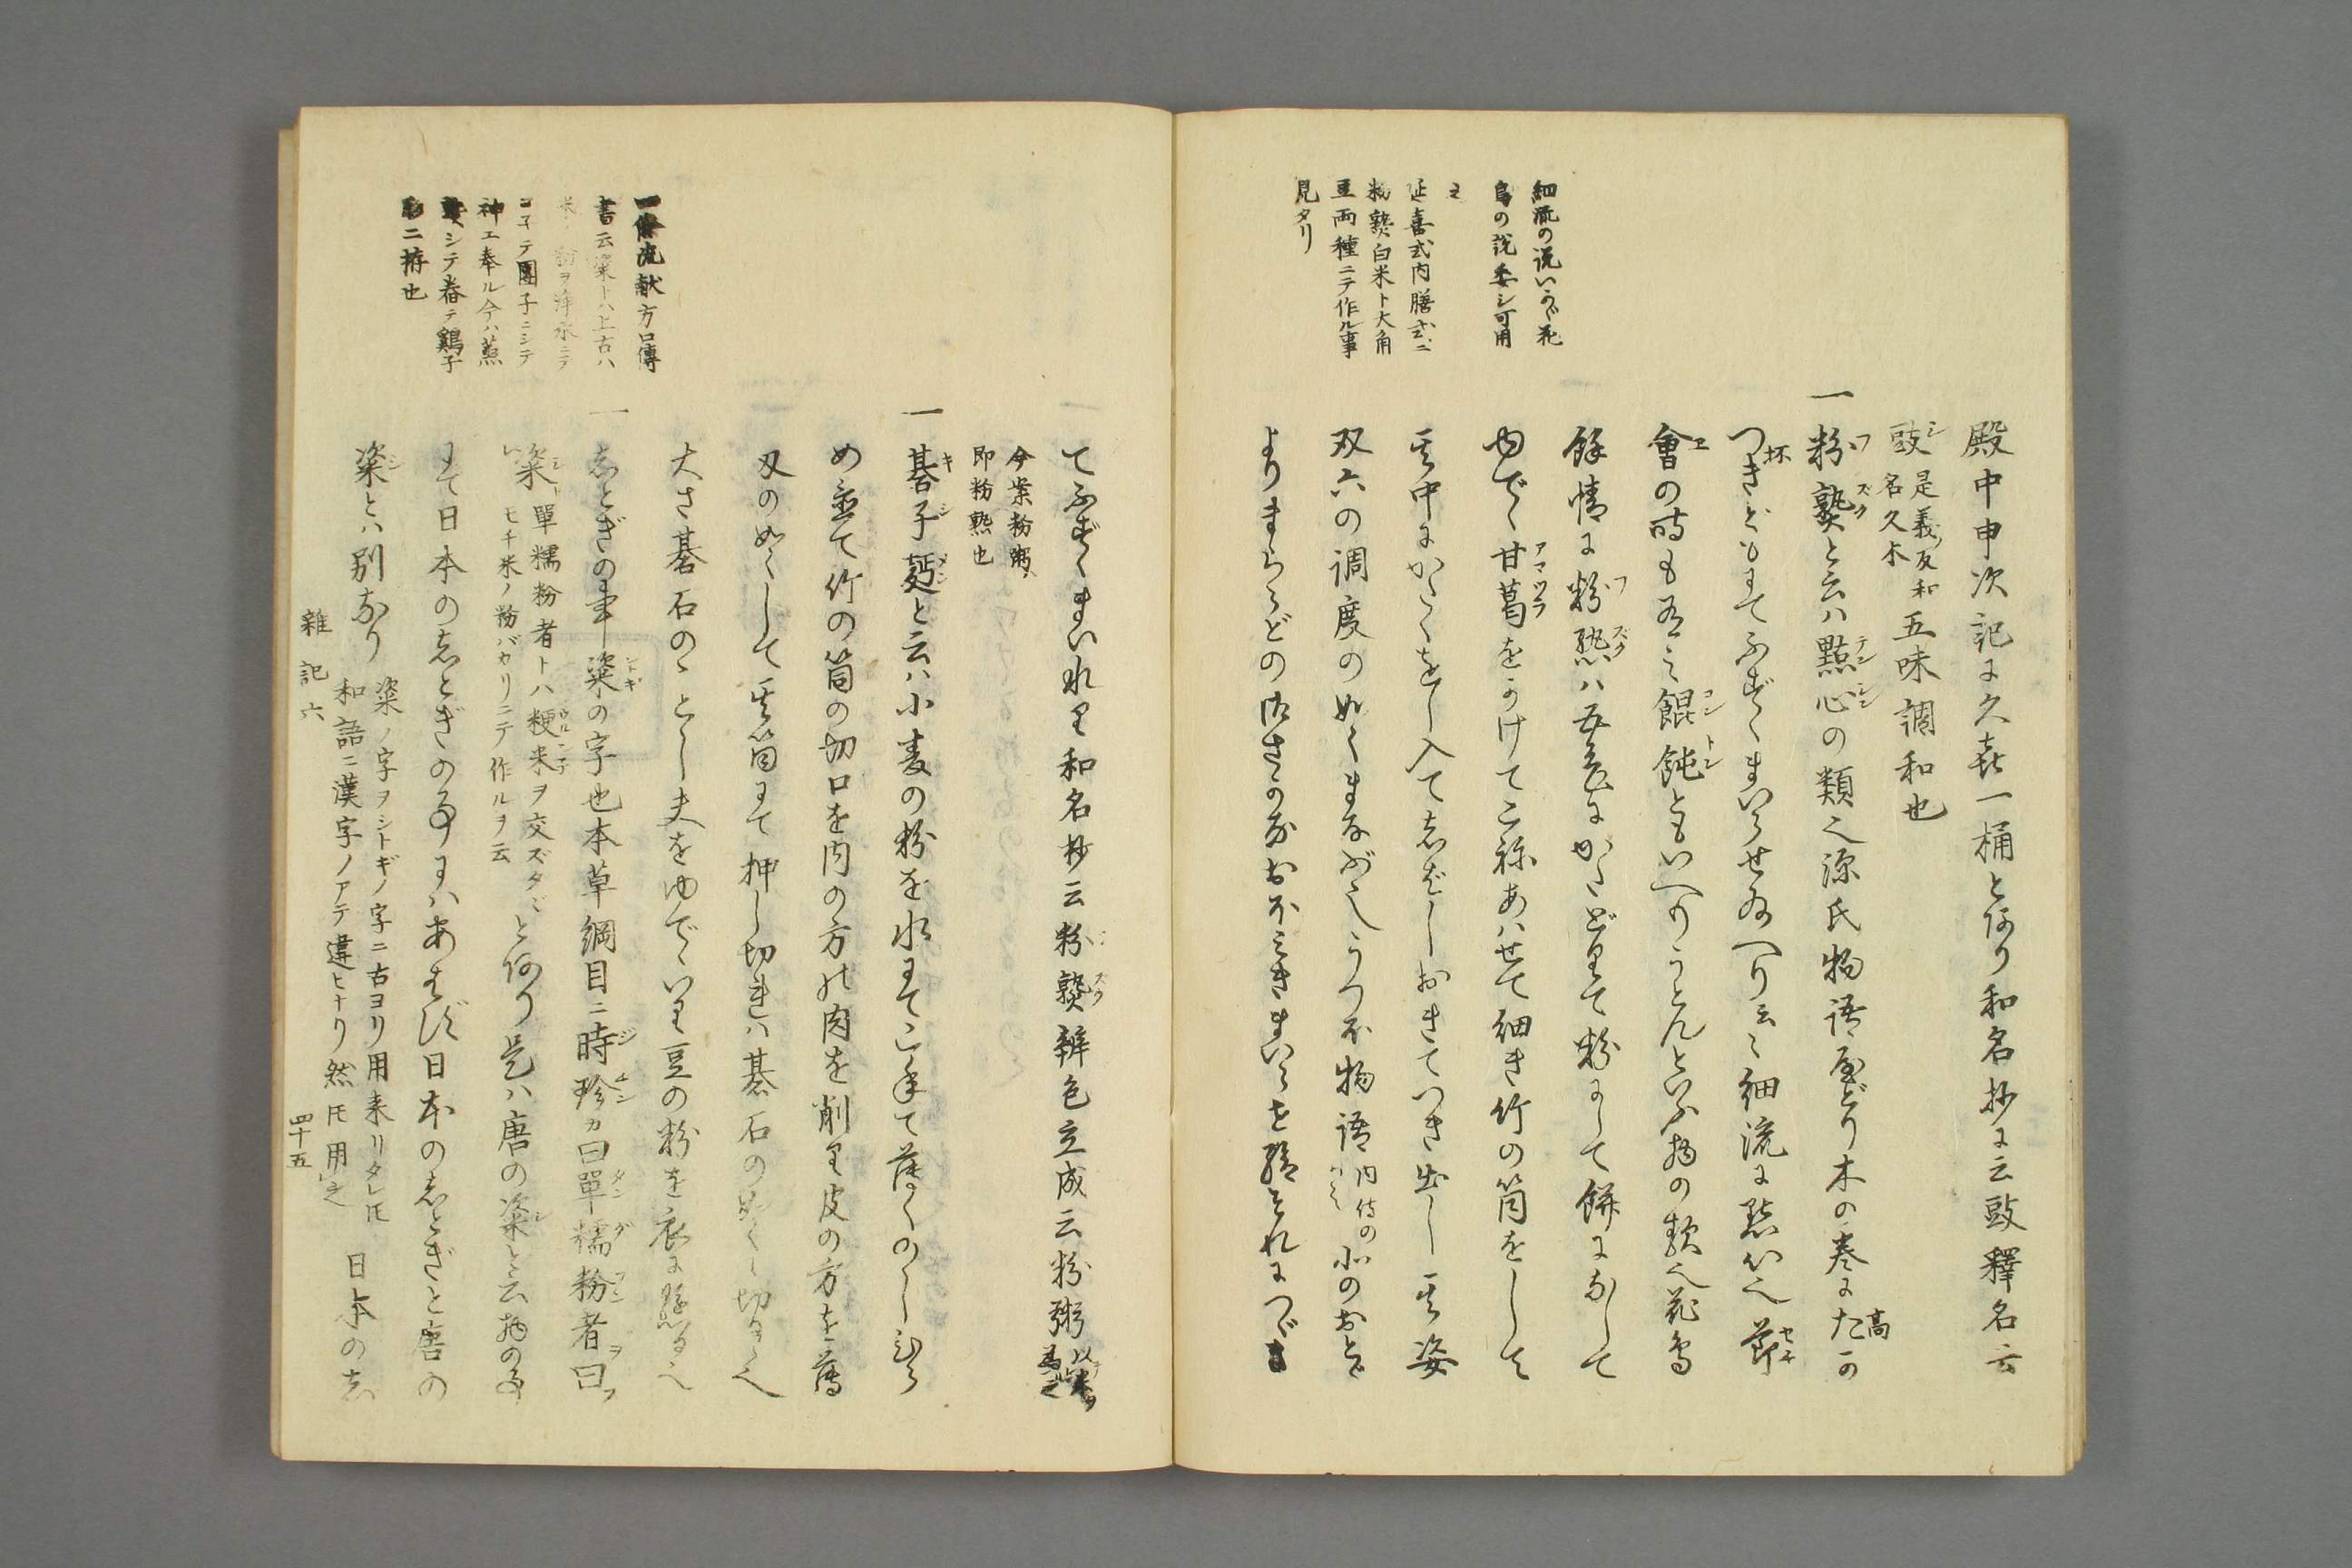 細流の説いかゞ花
鳥の説委シ可用
ヱ
延喜式内膳式ニ
粉熟白米ト大角
豆両種ニテ作ル事
見タリ
殿中申次記に久喜一桶と有り和名抄に云豉釋名云
豉シ是義反和名久木五味調和也
一粉熟フズクと云ハ點心テンシンの類也源氏物語屋どり木の巻にたか高
つき坏どもにてふずくまいらせ給へり云々細流に點心也節セチ
會ヱの時も有之餛飩コントンともいへりうとんといふ物の類也花鳥
餘情に粉熟フズクハ五色にかたどりて粉にして餅になして
ゆでゝ甘葛アマヅラをかけてこねあハせて細き竹の筒をして
其中にかたくをし入てしばしおきてつき出し其姿
双六の調度の如くまるがす也うつほ物語内侍の北のおとゞ
よりまちどの
一傳流献方口傳
書云粢トハ上古ハ
米ノ粉ヲ浄水ニテ
コネテ團子ニシテ
神エ奉ル今ハ蒸
熟シテ舂テ鶏子
形ニ拵也
てふずくまいれり和名抄云粉熟フズク辨色立成云粉粥以米粉為之
今案粉粥ハ
即粉熟也
一碁子麪キシメンと云ハ小麦の粉を水にてこねて薄くのしひら
め並て竹の筒の切口を内の方の肉を削り皮の方を薄
刄の如くして其筒にて押し切れハ碁石の如く切るゝ也
大さ碁石のことし夫をゆでゝいり豆の粉を衣に懸る也
一志とぎの事粢シトギの字也本草綱目ニ時珍ジチンカ曰單糯粉タンダフン者ヲ曰フ
粢シト單糯粉者トハ粳米ウルシネヲ交ズタヾモチ米ノ粉バカリニテ作ルヲ云と有り是ハ唐の粢シと云物の事
にて日本の志とぎの事にハあらず日本の志とぎと唐の
粢シとハ別なり粢ノ字ヲシトギノ字ニ古ヨリ用来リタレ𪜈和語ニ漢字ノアテ違ヒナリ然𪜈用之日本の志
雜記六
四十五